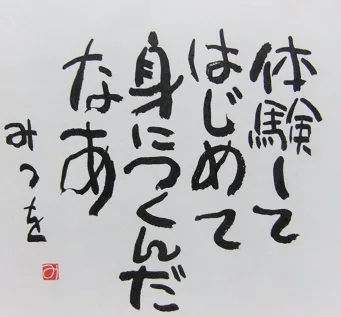 体験して
はじめて
身につくんだ
なあ
みつを
み